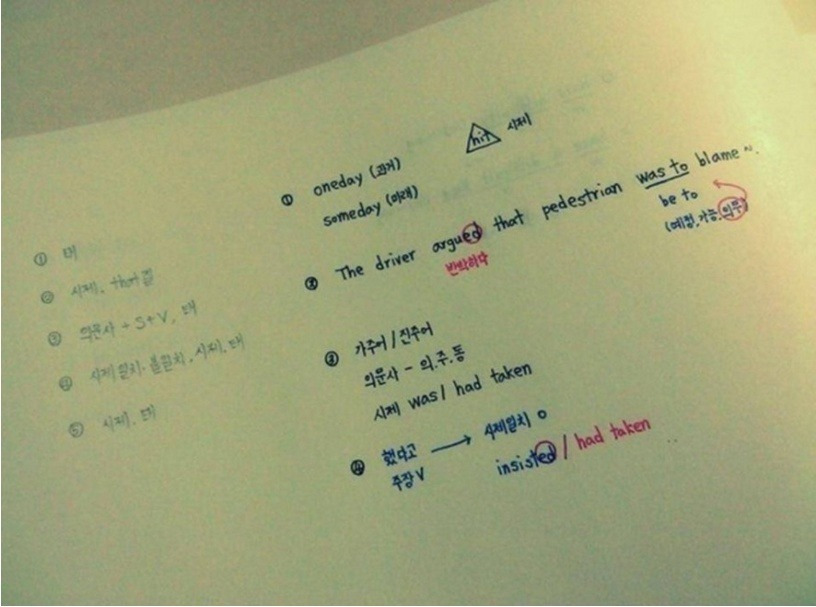 ① 태
② 시제, that절
③ 의문사 + S+V, 태
④ 시제일치·불일치, 시제, 태
⑤ 시제, 태
hit 시제
① oneday (과거)
someday (미래)
② The driver argued that pedestrian was to blame ~.
반박하다
be to
(예정, 가능, 의무)
③ 가주어 / 진주어
의문사 - 의.주.동
시제 was / had taken
④ 했다고 → 시제일치 o
주장 V
insisted / had taken